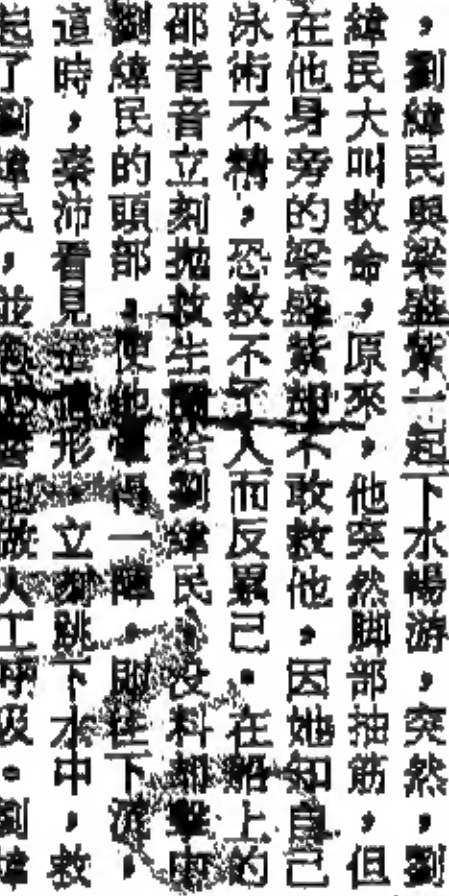 ，劉緯民與梁盛紫一起下水暢游，突然，劉
緯民大叫救命，原來，他突然脚部抽筋，但
在他身旁的梁盛紫却不敢救他。因她知自己
泳術不精，恐救不了人而反累己。在船上的
邵音音立刻拋救生圈給劉緯民，沒料却擊中
劉緯民的頭部，使他 得一陣， 往下沉，
這時，秦沛看見這情形，立刻跳下水中，救
起了劉緯民，並 他 施人工呼吸。劉緯